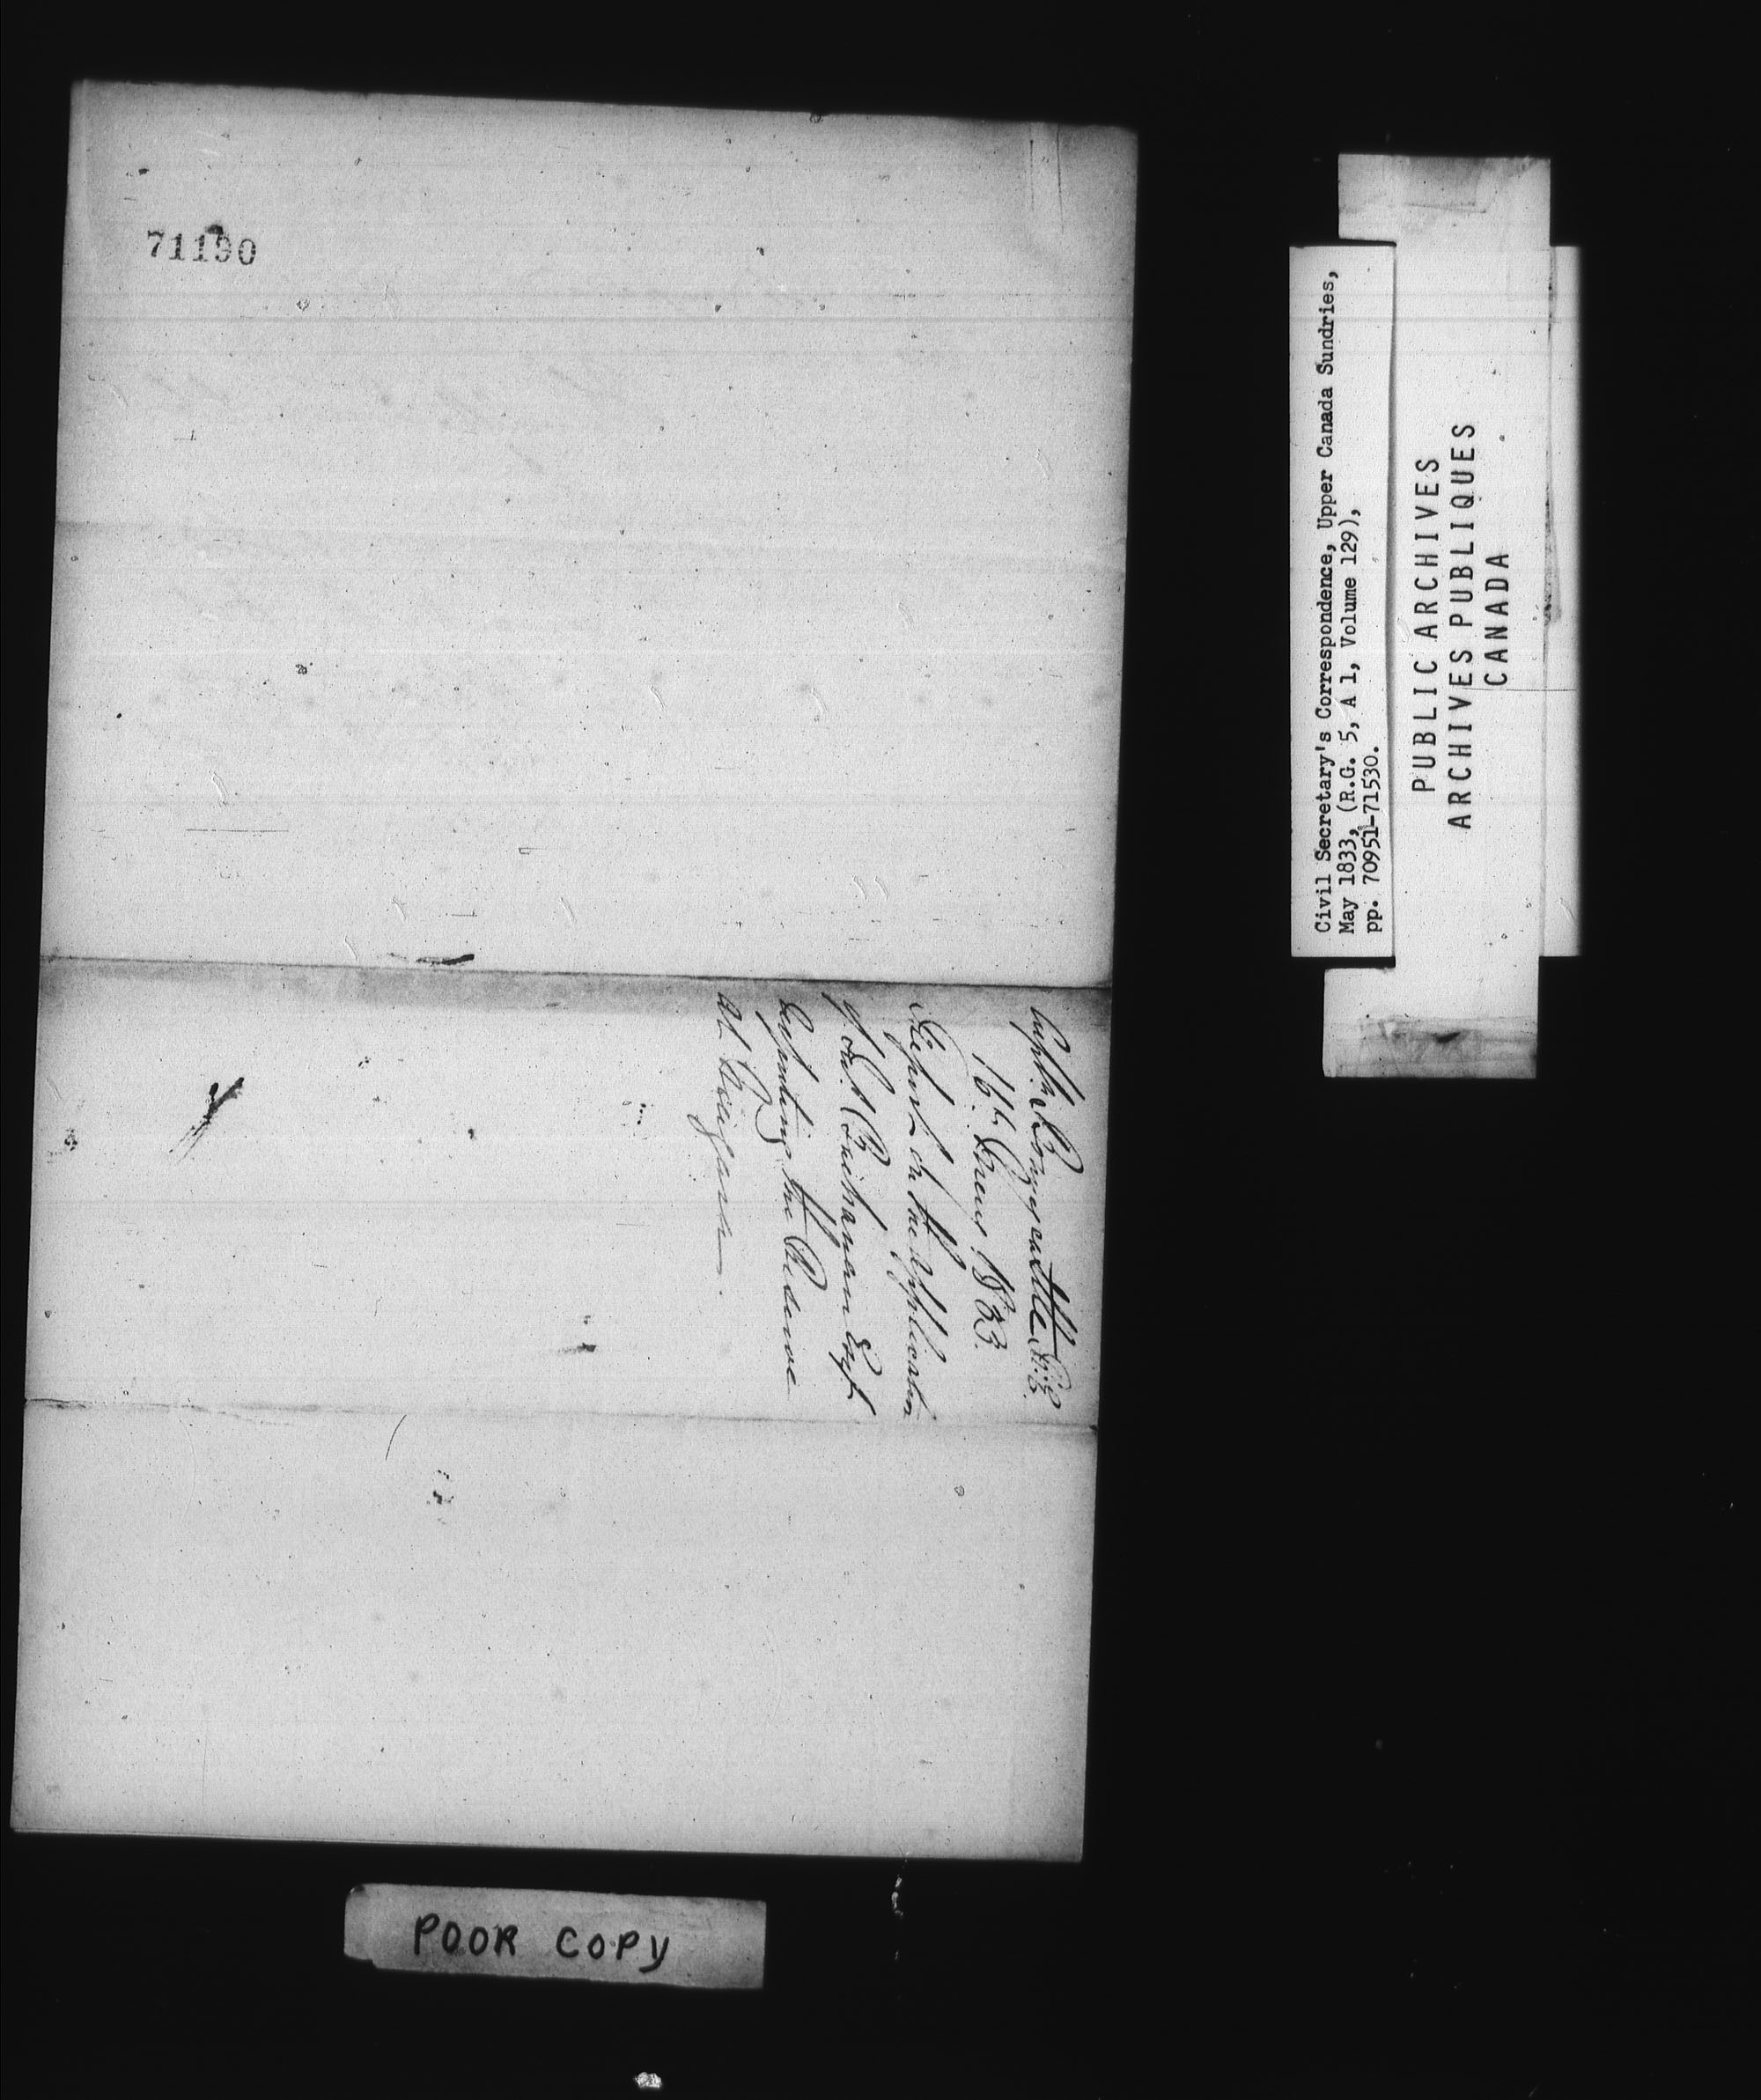 71190
Captn. Bonnycastle R.E.
16th 1833.
Report on the application
of Buchanan Esqr
respecting the Reserve
at
Civil Secretary's Correspondence, Upper Canada Sundries,
May 1833, (R.G. 5, A 1, Volume 129),
pp. 70951-71530.
PUBLIC ARCHIVES
ARCHIVES PUBLIQUES
CANADA
POOR COPY